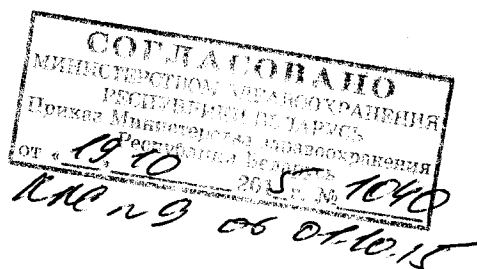 СОГЛАСОВАНО
МИНИСТЕРСТВОМ ЗДРАВООХРАНЕНИЯ
РЕСПУБЛИКИ БЕЛАРУСЬ
Приказ Министерства здравоохранения
Республики Беларусь
от « 19.10 2015 г. № 1040
КЛС № 9 от 01.10.15